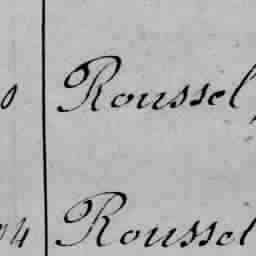 0 Roussel,
04 Roussel